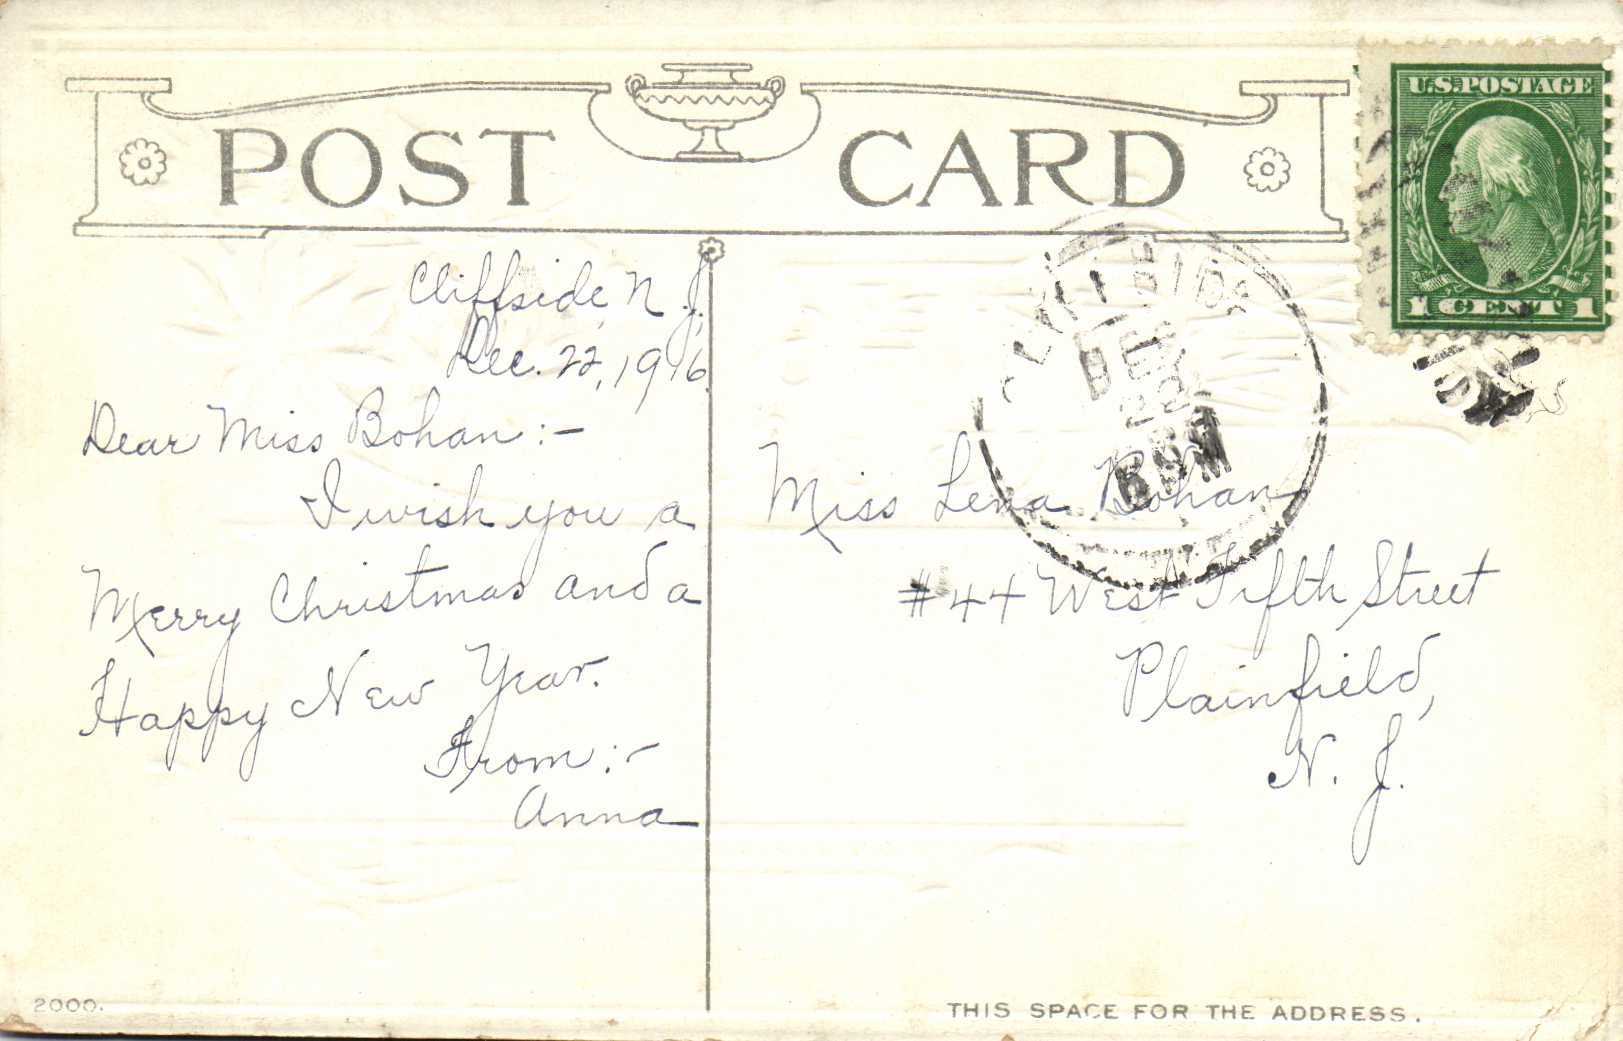 POST CARD
U.S. POSTAGE
1 CENT 1
Cliffside, N. J.
Dec. 22, 1916
Dear Miss Bohan:-
I wish you a
Merry Christmas and a
Happy New Year.
From:-
Anna
DEC
22
Miss Lena Bohan
#44 West Fifth Street
Plainfield,
N. J.
2000.
THIS SPACE FOR THE ADDRESS.